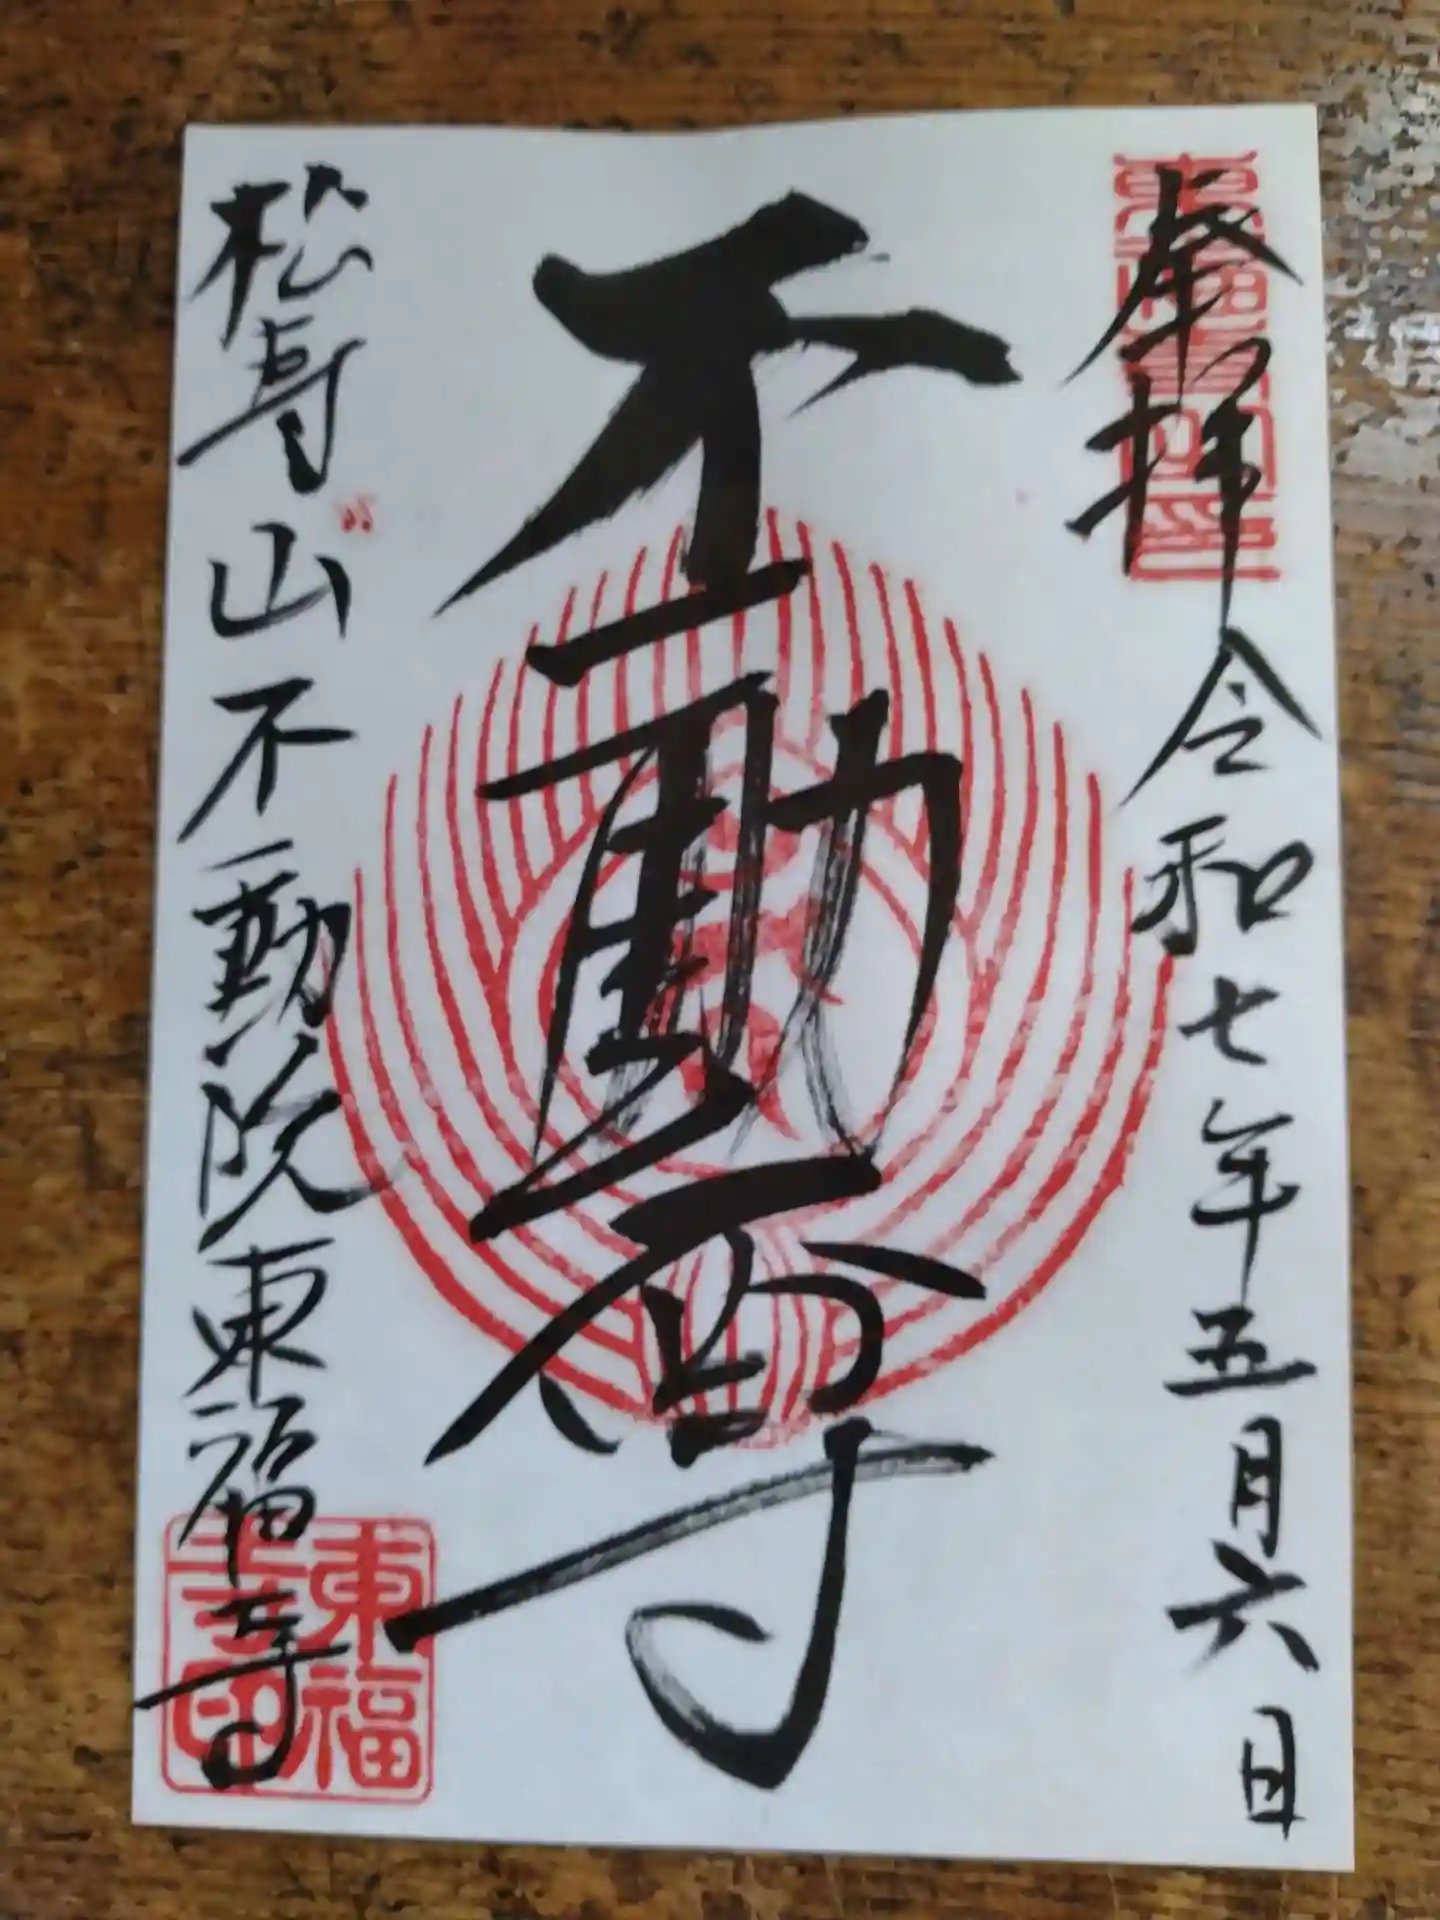 奉拝 令和七年五月六日
不動尊
松寿山不動院東福寺
東福
寺印